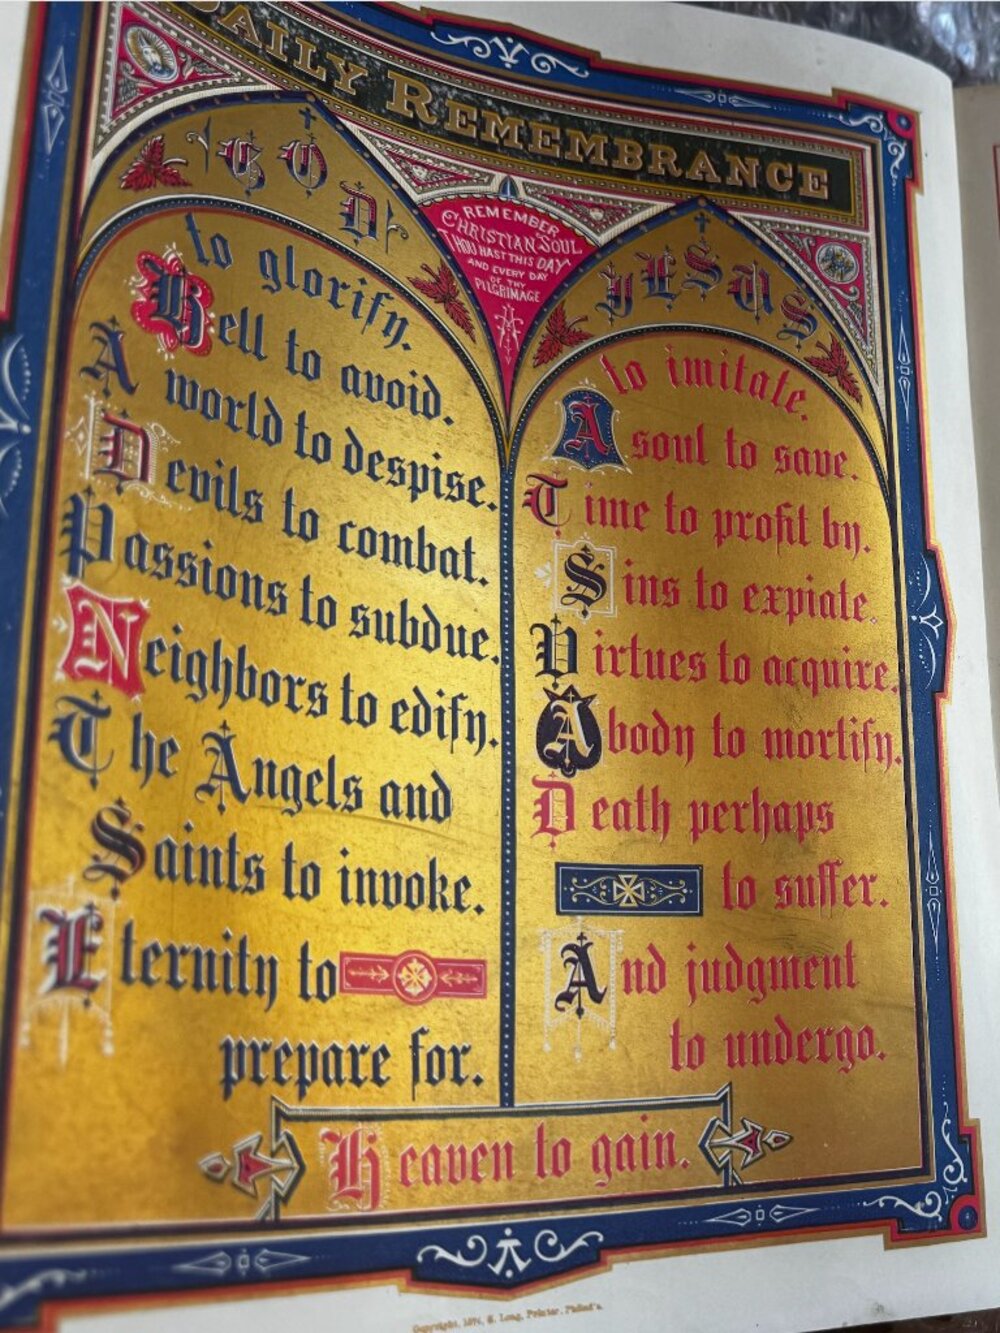 DAILY REMEMBRANCE
REMEMBER
CHRISTIAN SOUL
THOU HAST THIS DAY
AND EVERY DAY
OF THY
PILGRIMAGE
GOD
to glorify.
Hell to avoid.
A world to despise.
Devils to combat.
Passions to subdue.
Neighbors to edify.
The Angels and
Saints to invoke.
Eternity to
prepare for.
JESUS
to imitate.
A soul to save.
Time to profit by.
Sins to expiate.
Virtues to acquire.
A body to mortify.
Death perhaps
to suffer.
And judgment
to undergo.
Heaven to gain.
Copyright, 1874, G. Long, Printer, Philad'a.